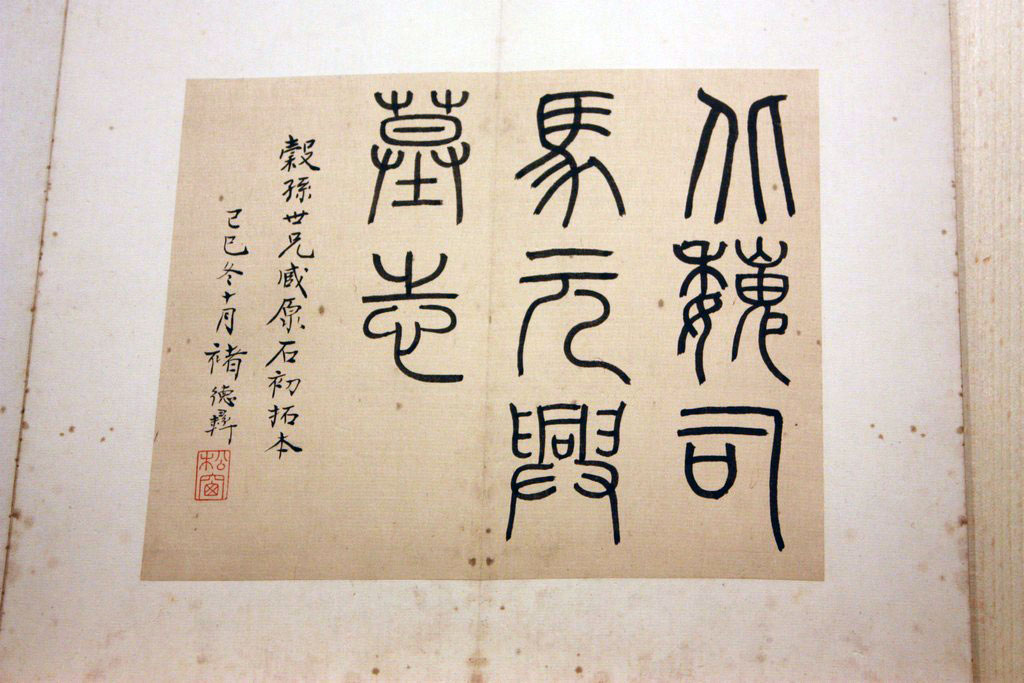 北魏司
馬元興
墓志
穀孫世兄臧原石初拓本
己巳冬十月褚德彝
松窗